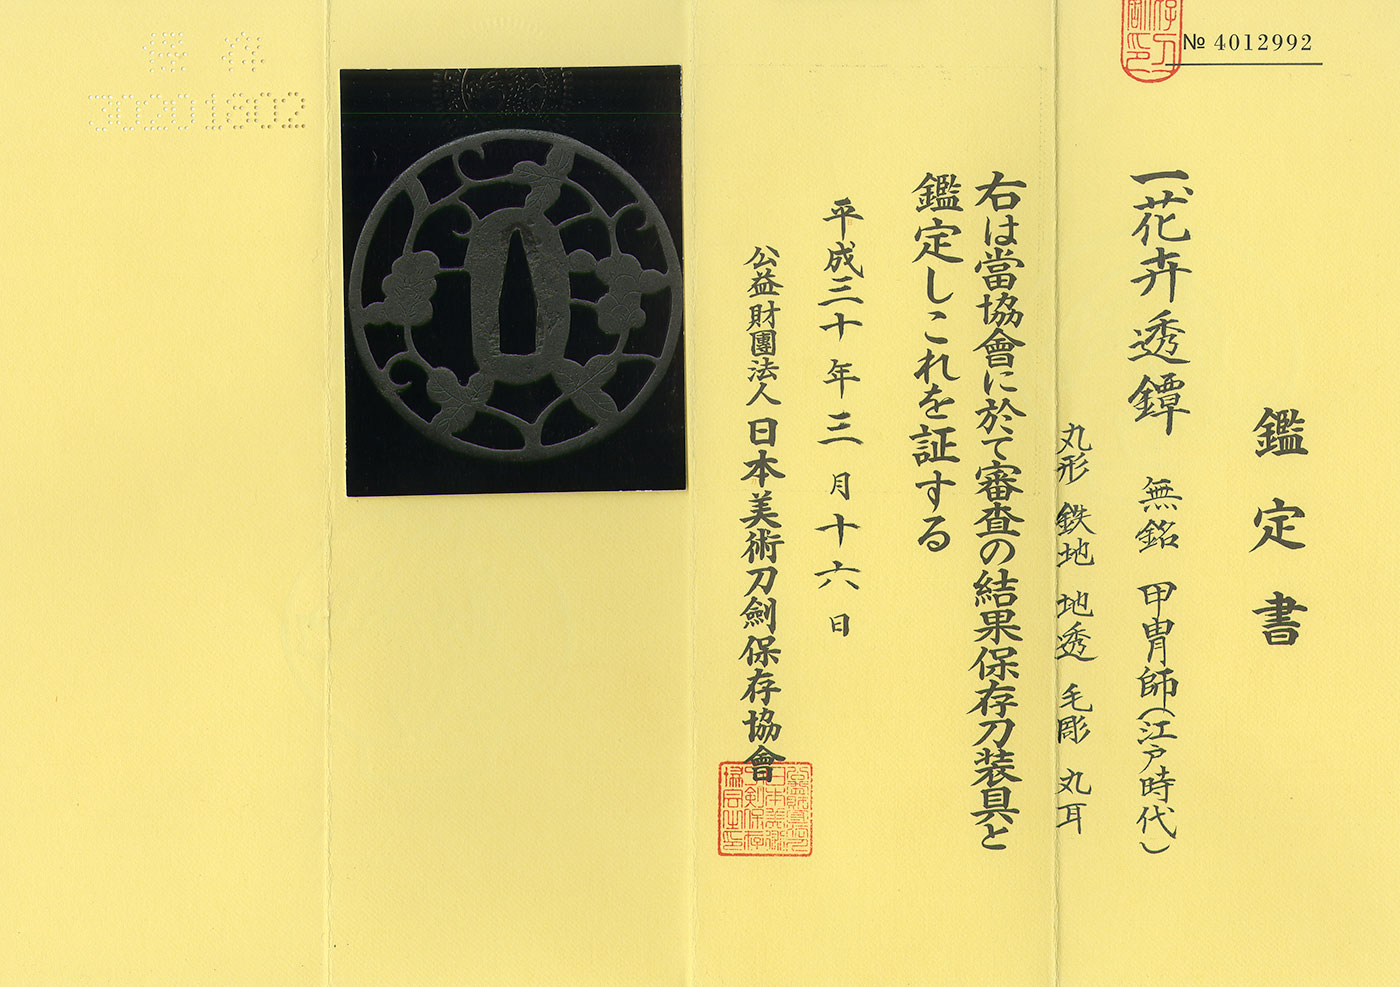 № 4012992
鑑定書
一、花卉透鐔 無銘 甲冑師(江戸時代)
丸形 鉄地 地透 毛彫 丸耳
右は當協會に於て審査の結果保存刀装具と
鑑定しこれを証する
平成三十年三月十六日
公益財團法人 日本美術刀劍保存協會
保存
30201802